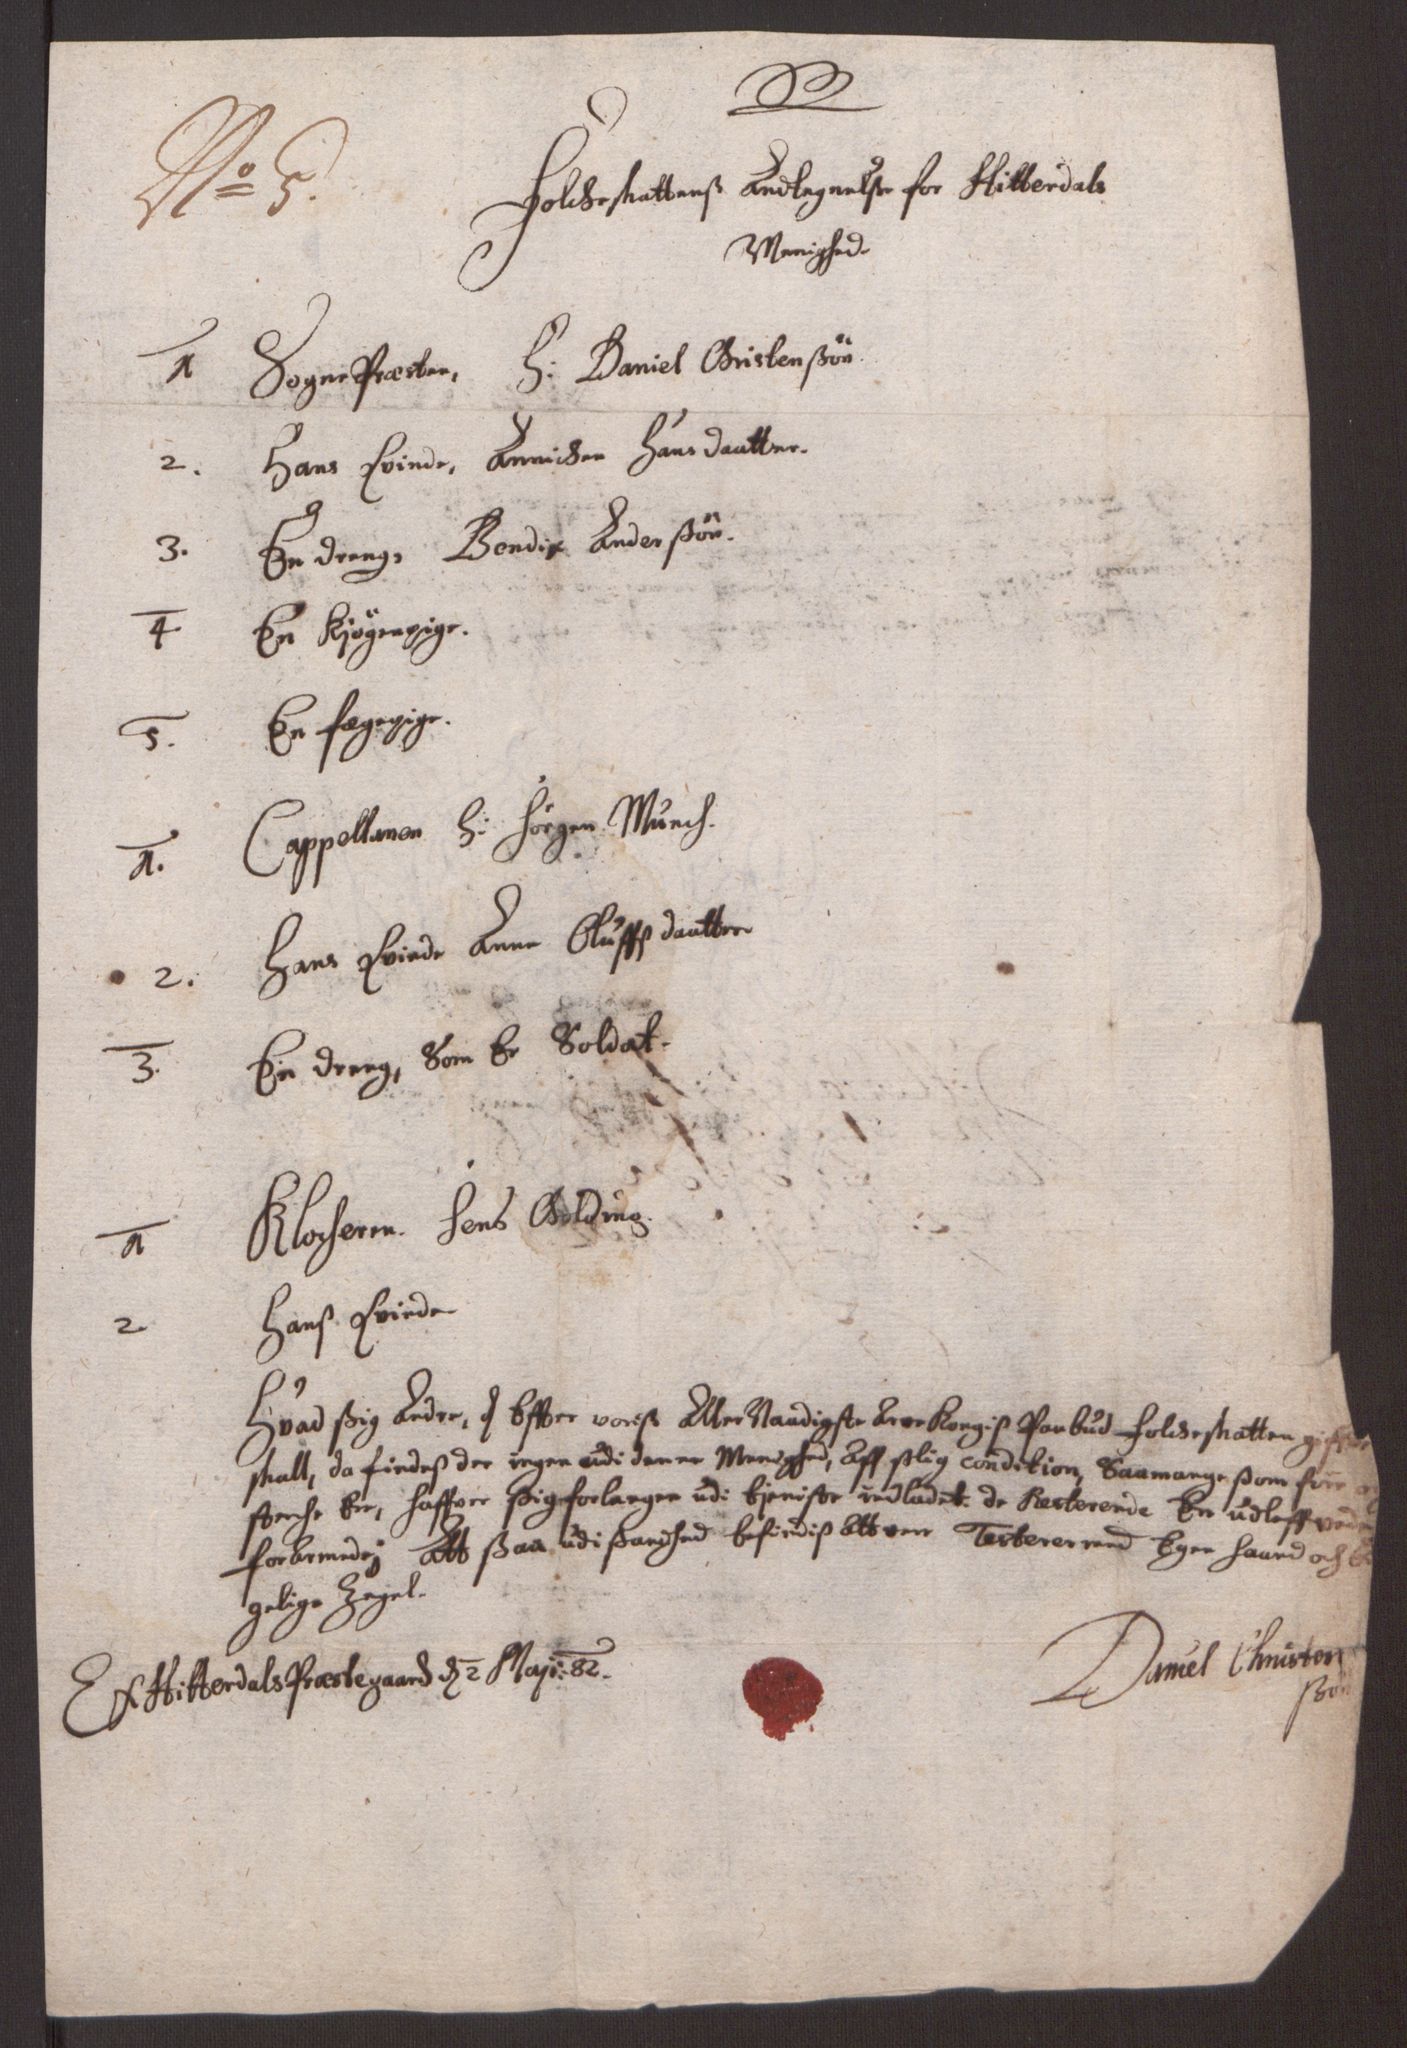 No 5.
Folcheskattenß Andtegnelse for Hitterdals
Menighed.
1 SognePræsten, H: Daniel Christenßön
2. Hans Qvinde, Annichen Hansdaatter.
3. En dreng, Bendix Anderßön.
4 En Kjögepige.
5. En fægepige.
1. Cappellanen H: Jörgen Munch.
2. Hans Qvinde Anne Oluffsdaatter
3. En dreng, Som Er Soldat.
1 Klocheren. Jens Golding.
2 Hanß Qvinde
Hvad ßig Andre, Effter voriß Aller Naadigste Arve Kongiß Paabud Folcheskatten giffve
skall, da findeß der ingen udi denne Menighed, Aff slig condition, Saamange ßom före
sterche Ere, haffver ßig forlangen udi tjeniste indladet. de Resterende Er udleffvede
forarmede; Att ßaa udi ßandhed befindiß Attestererer med Egen haand och
gelige Zegel.
Ex Hitterdals Præstegaard d 2 Maji: 82.
Daniel Christen
ßön